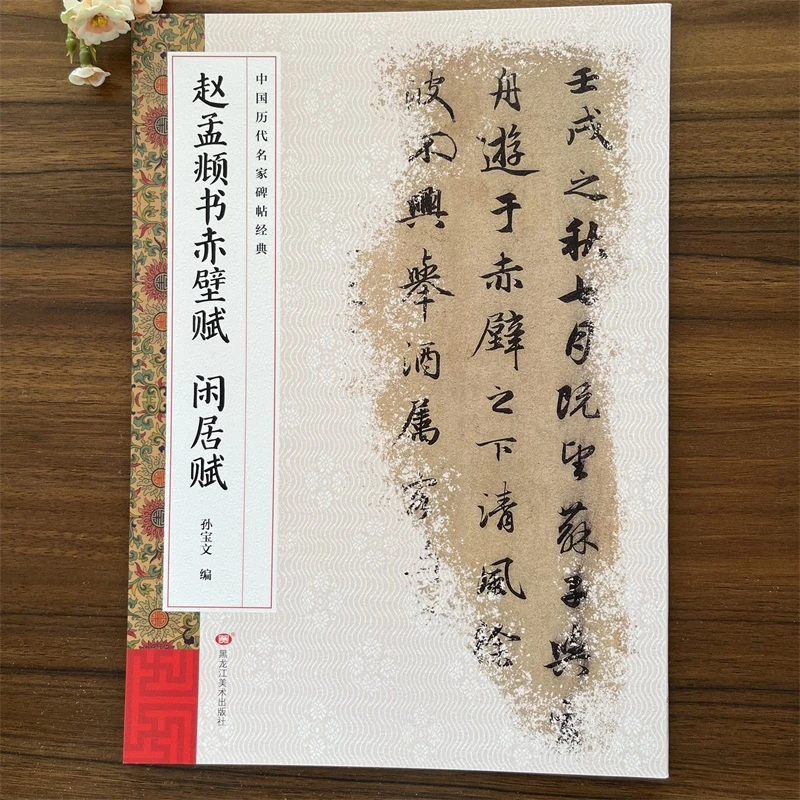 中国历代名家碑帖经典
赵孟頫书赤壁赋 闲居赋
孙宝文 编
黑龙江美术出版社
壬戌之秋七月既望蘇子與客
舟遊于赤壁之下清風徐
波不興舉酒属客